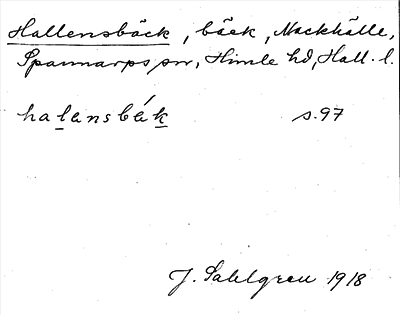 Hallensbäck, bäck, Mackhälle,
Spannarps sn, Himle hd, Hall. l.
halensbäk s.97
J. Sahlgren 1918